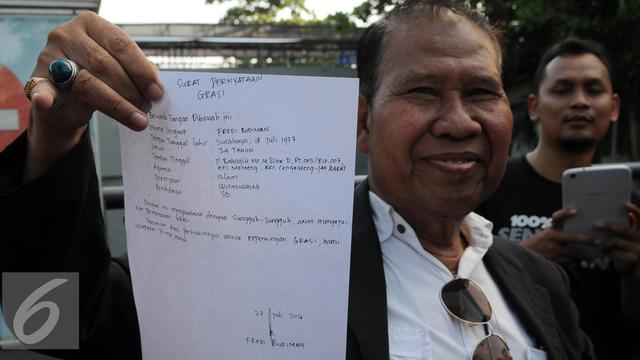 SURAT PERNYATAAN
GRASI
Bertanda Tangan Dibawah ini :
Nama lengkap : FREDI BUDIMAN
Tempat Tanggal lahir : Surabaya, 18 Juli 1977
Umur : 39 TAHUN
Tempat Tinggal : Jl. Bahagia No. 4 Blok D, RT.005/RW.007,
KEL Menteng, Kec. Cengkareng - JAK BARAT
Agama : Islam
Pekerjaan : Wiraswasta
Pendidikan : SD
ini menyatakan dengan sungguh-sungguh, akan mengaju-
kan Permohonan
untuk kepentingan GRASI, kami
ucapkan Terima kasih
27 Juli 2016
FREDI BUDIMAN
100%
6